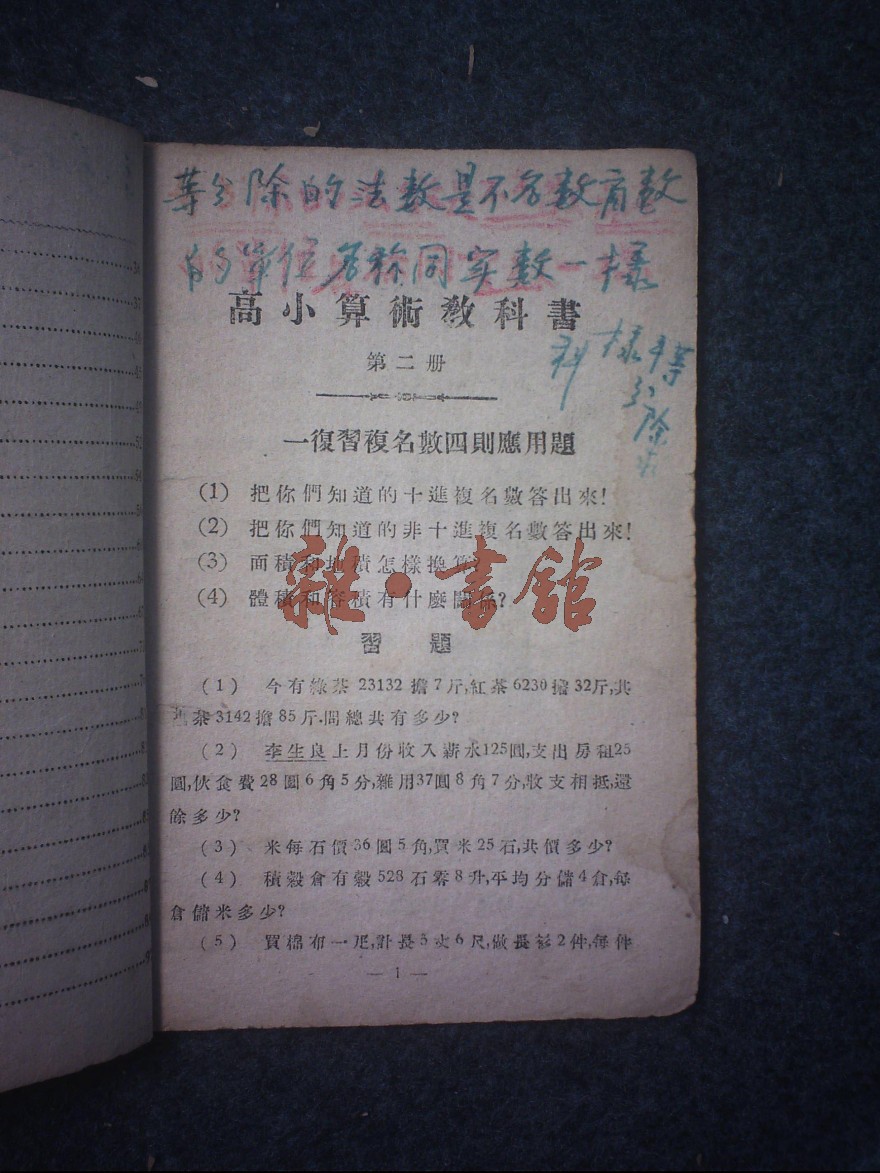 等分除的法數是不名數商數
的單位名称同实數一様
高小算術教科書
第二册
一復習複名數四則應用題
(1) 把你們知道的十進複名數答出來!
(2) 把你們知道的非十進複名數答出來!
(3) 面積和地積怎樣換算
(4) 體積和容積有什麼關係?
雜·書館
習題
(1) 今有綠茶 23132 擔 7 斤,紅茶 6230 擔 32 斤,其
茶 3142 擔 85 斤.問總共有多少?
(2) 李生良上月份收入薪水125圓,支出房租25
圓,伙食費28圓6角5分,雜用37圓8角7分,收支相抵,還
餘多少?
(3) 米每石價36圓5角,買米25石,共價多少?
(4) 積穀倉有穀528石零8升,平均分儲4倉,每
倉儲米多少?
(5) 買棉布一疋,計長5丈6尺,做長衫2件,每件
— 1 —